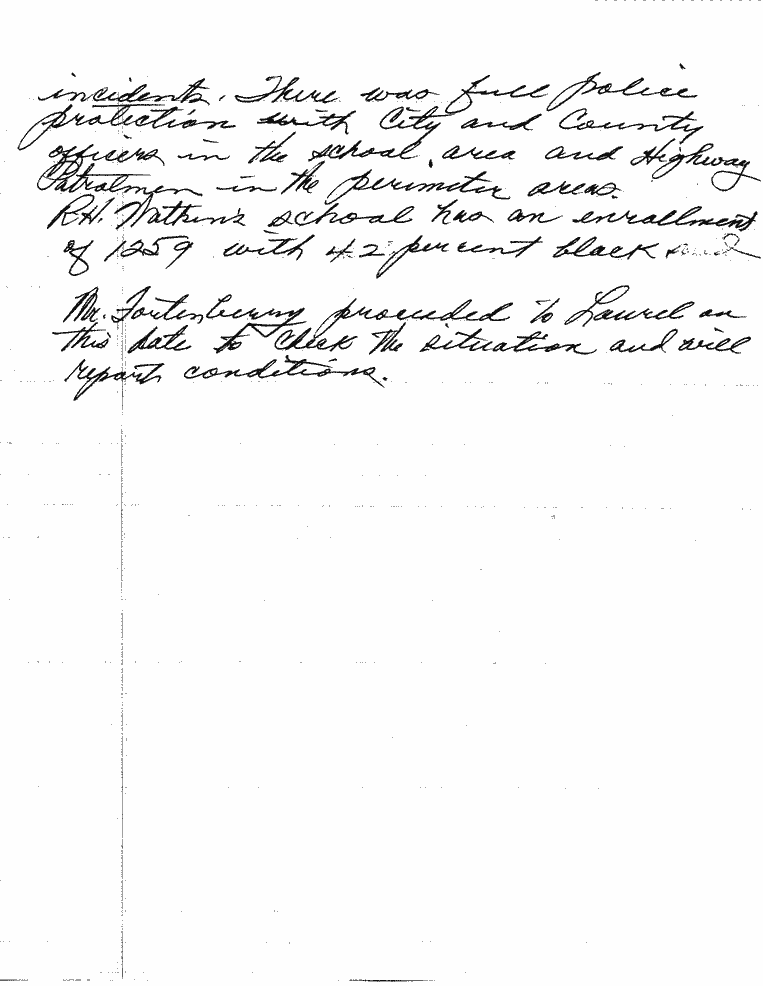 incidents. There was full police
protection with City and County
officers in the school area and Highway
Patrolmen in the perimeter areas.
R.H. Watkin's school has an enrollment
of 1259 with 42 percent black
Mr. Fortenberry proceeded to Laurel on
this date to check the situation and will
report conditions.